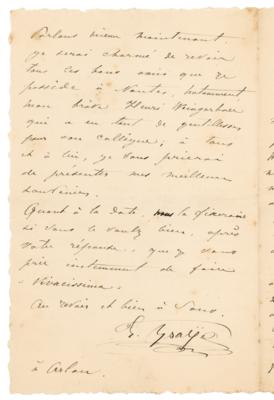 Parlons mieux maintenant
je serai charmé de revoir
tous ces bons amis que je
possède à Nantes, notamment
mon brave Henri Weingaertner
qui a eu tant de gentillesses
pour son collègue; à tous
et à lui, je vous prierai
de présenter mes meilleurs
souvenirs.
Quant à la date, nous la fixerons
si vous le voulez bien, après
votre réponse, que je vous
prie instamment de faire
"Vivacissima"
Au revoir et bien à vous.
E. Ysaÿe
à Arlon.